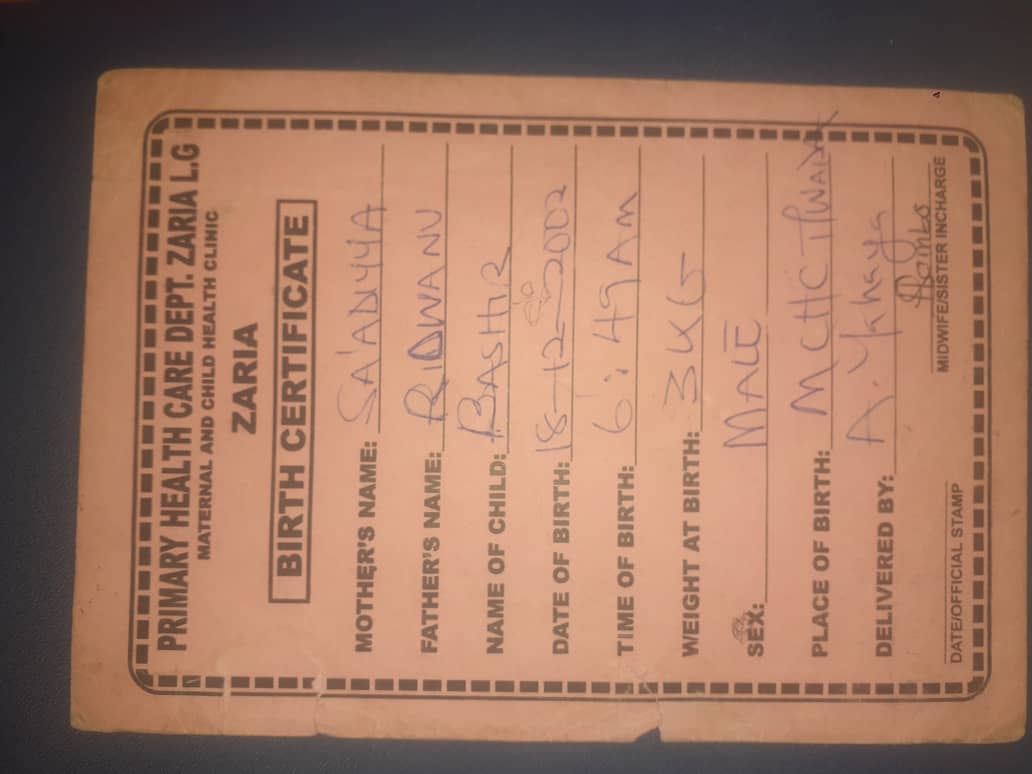 PRIMARY HEALTH CARE DEPT. ZARIA L.G
MATERNAL AND CHILD HEALTH CLINIC
ZARIA
BIRTH CERTIFICATE
MOTHER'S NAME: SA'ADIYYA
FATHER'S NAME: RIDWANU
NAME OF CHILD: BASHIR
DATE OF BIRTH: 18-12-2002
TIME OF BIRTH: 6:49AM
WEIGHT AT BIRTH: 3KG
SEX: MALE
PLACE OF BIRTH: MCHC
DELIVERED BY: A. Yahaya
DATE/OFFICIAL STAMP MIDWIFE/SISTER INCHARGE